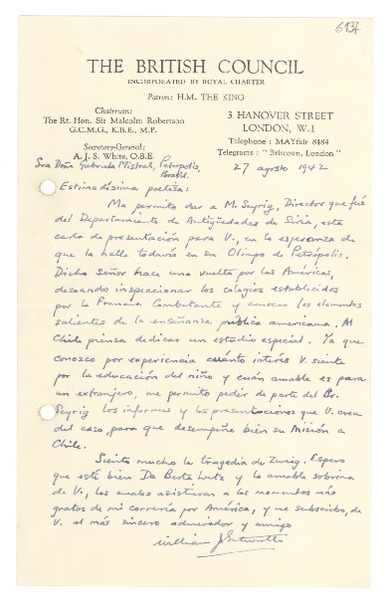 6137
THE BRITISH COUNCIL
INCORPORATED BY ROYAL CHARTER
Patron: H.M. THE KING
Chairman:
The Rt. Hon. Sir Malcolm Robertson
G.C.M.G., K.B.E., M.P.
Secretary-General:
A. J. S. White, O.B.E.
3 HANOVER STREET
LONDON, W.1
Telephone : MAYfair 8484
Telegrams : "Britcoun, London"
27 agosto 1942
Sra Doña Gabriela Mistral, Petropolis,
Brasil.
Estimadísima poetisa:
Me permito dar a M. Seyrig, Director que fué
del Departamiento de Antigüedades de Siria, esta
carta de presentación para V., en la esperanza de
que la halle todavía en su Olimpo de Petrópolis.
Dicho Señor hace una vuelta por las Américas,
deseando inspeccionar los colegios establecidos
por la Francia Combatante y conocer los elementos
salientes de la enseñanza pública americana. Al
Chile piensa dedicar un estudio especial. Ya que
conozco por experiencia cuánto interés V. siente
por la educación del niño y cuán amable es para
un extranjero, me permito pedir de parte del Sr.
Seyrig los informes y las presentaciones que V. crea
del caso, para que desempeñe bien su misión a
Chile.
Siento mucho la tragedia de Zweig. Espero
que esté bien Da Berta Lutz y la amable sobrina
de V., los cuales asistieron a los momentos más
gratos de mi correría por América, y me subscribo, de
V. el más sincero admirador y amigo
William J. Entwistle